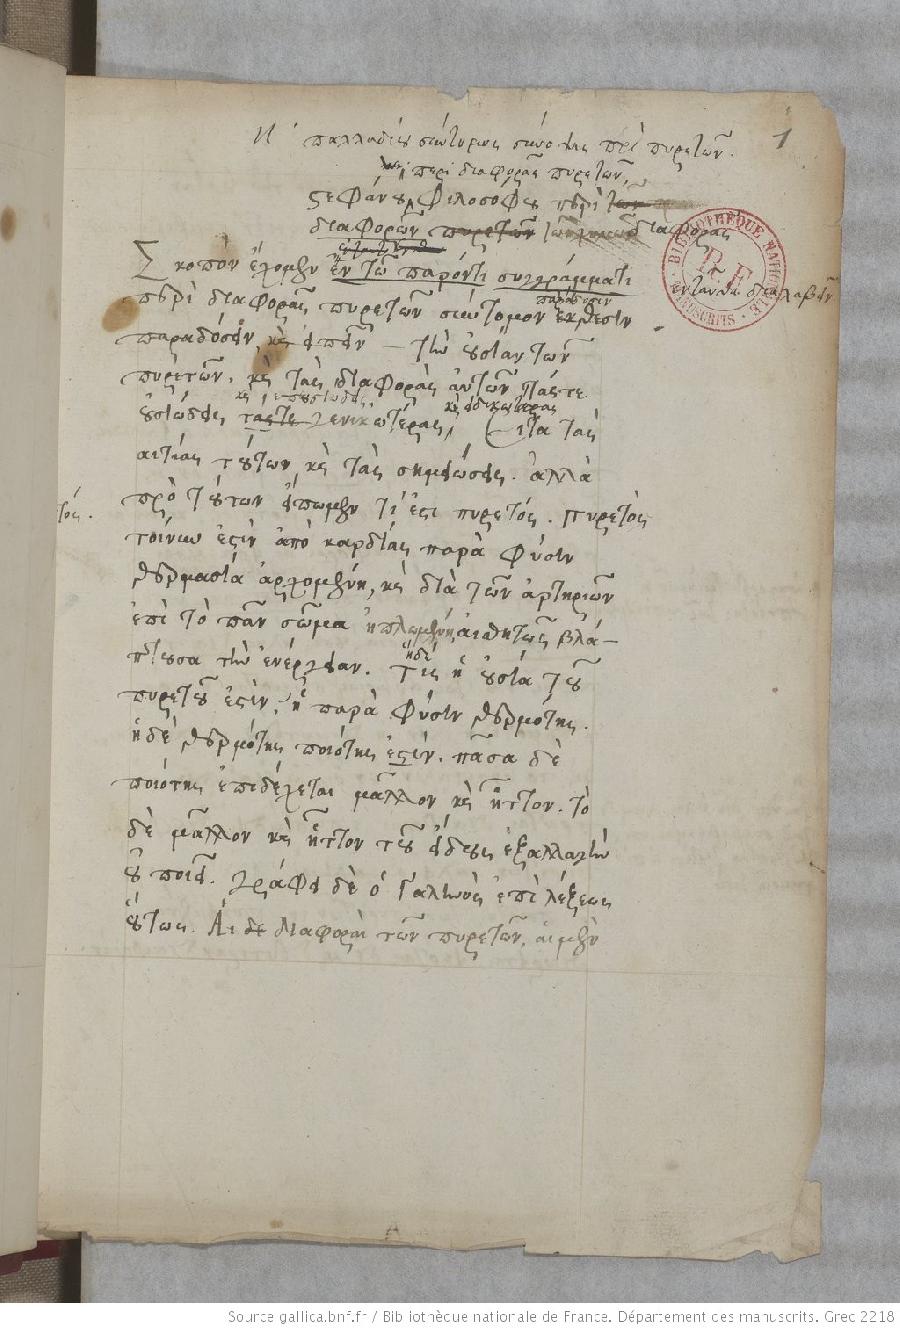 1
παλλαδίου σύντομος σύνοψις περὶ πυρετῶν.
περὶ διαφορᾶς πυρετῶν
Στεφάνου φιλοσόφου περὶ
διαφορῶν πυρετῶν διαφορᾶς
Σκοπὸν ἔχομεν ἐν τῷ παρόντι συγγράμματι
περὶ διαφορᾶς πυρετῶν σύντομον ἔκθεσιν
παράδοσιν
παραδόσειν, καὶ εἰπεῖν τὴν οὐσίαν τῶν
πυρετῶν, καὶ τὰς διαφορὰς αὐτῶν τάς τε
οὐσιώδεις τάς τε γενικωτέρας, εἶτα τὰς
καὶ εἰδικωτέρας
αἰτίας τούτων, καὶ τὰς σημειώσεις. ἀλλὰ
πρὸ τούτων εἴπωμεν τί ἐστι πυρετός. Πυρετὸς
τος.
τοίνυν ἐστὶν ἀπὸ καρδίας παρὰ φύσιν
θερμασία ἀρχομένη, καὶ διὰ τῶν ἀρτηριῶν
ἐπὶ τὸ πᾶν σῶμα ἡπλωμένη, αἰσθητῶς βλά-
πτουσα τὴν ἐνέργειαν. τίς ἡ οὐσία τοῦ
πυρετοῦ ἐστὶν, ἡ παρὰ φύσιν θερμότης.
ἡ δὲ θερμότης ποιότης ἐστίν. πᾶσα δὲ
ποιότης ἐπιδέχεται μᾶλλον καὶ ἧττον. τὸ
δὲ μᾶλλον καὶ ἧττον τοῦ εἴδους ἐξαλλαγὴν
οὐ ποιεῖ. γράφει δὲ ὁ Γαληνὸς ἐπὶ λέξεως
οὕτως. Αἱ δὲ διαφοραὶ τῶν πυρετῶν, αἱ μὲν
BIBLIOTHÈQUE NATIONALE
R.F
MANUSCRITS
Source gallica.bnf.fr / Bibliothèque nationale de France. Département des manuscrits. Grec 2218